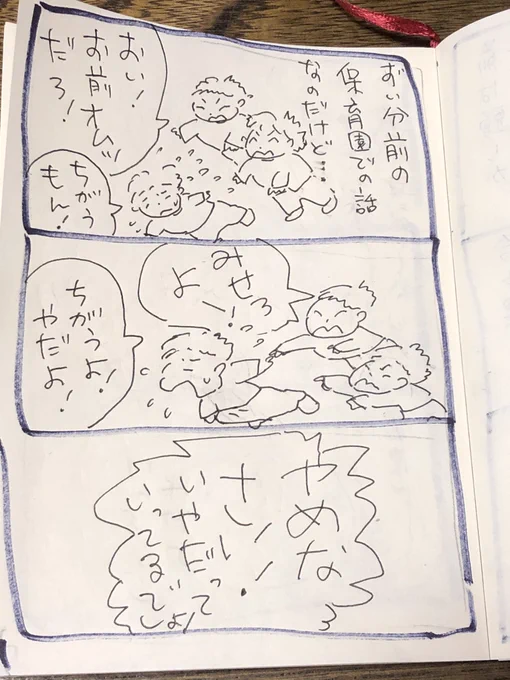 ずい分前の
保育園での話
なのだけど…
おい!
お前オムツ
だろ!
ちがう
もん!
みせろ
よー!
ちがうよ!
やだよ!
やめな
さい!
いやだって
いってるでしょ!